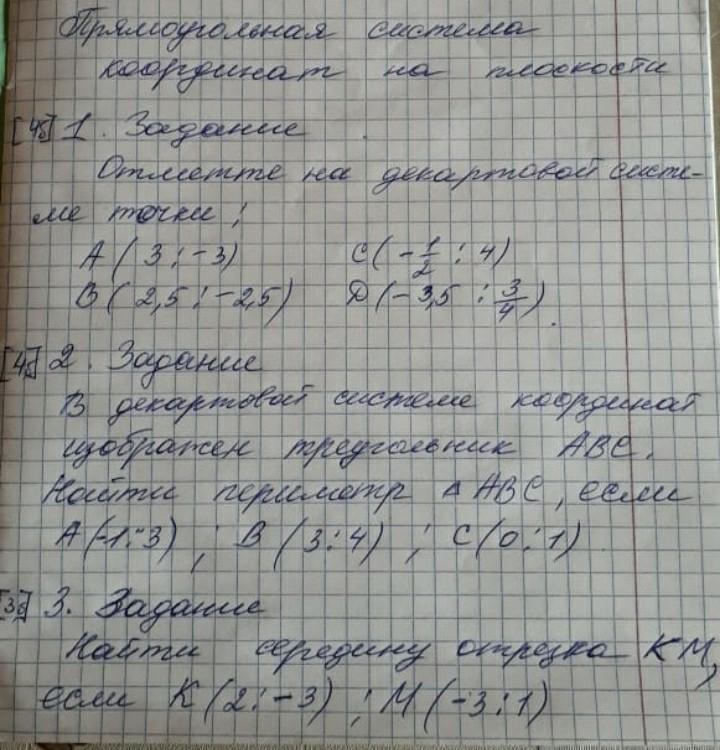 Прямоугольная система
координат на плоскости
[4б] 1. Задание
Отметте на декартовой систе-
ме точки:
A(3;-3) C(-1/2;4)
B(2,5;-2,5) D(-3,5;3/4).
[4б] 2. Задание
В декартовой системе координат
изображен треугольник ABC.
Найти периметр △ABC, если
A(-1;-3); B(3;4); C(0;1)
[3б] 3. Задание
Найти середину отрезка KM,
если K(2;-3); M(-3;1)